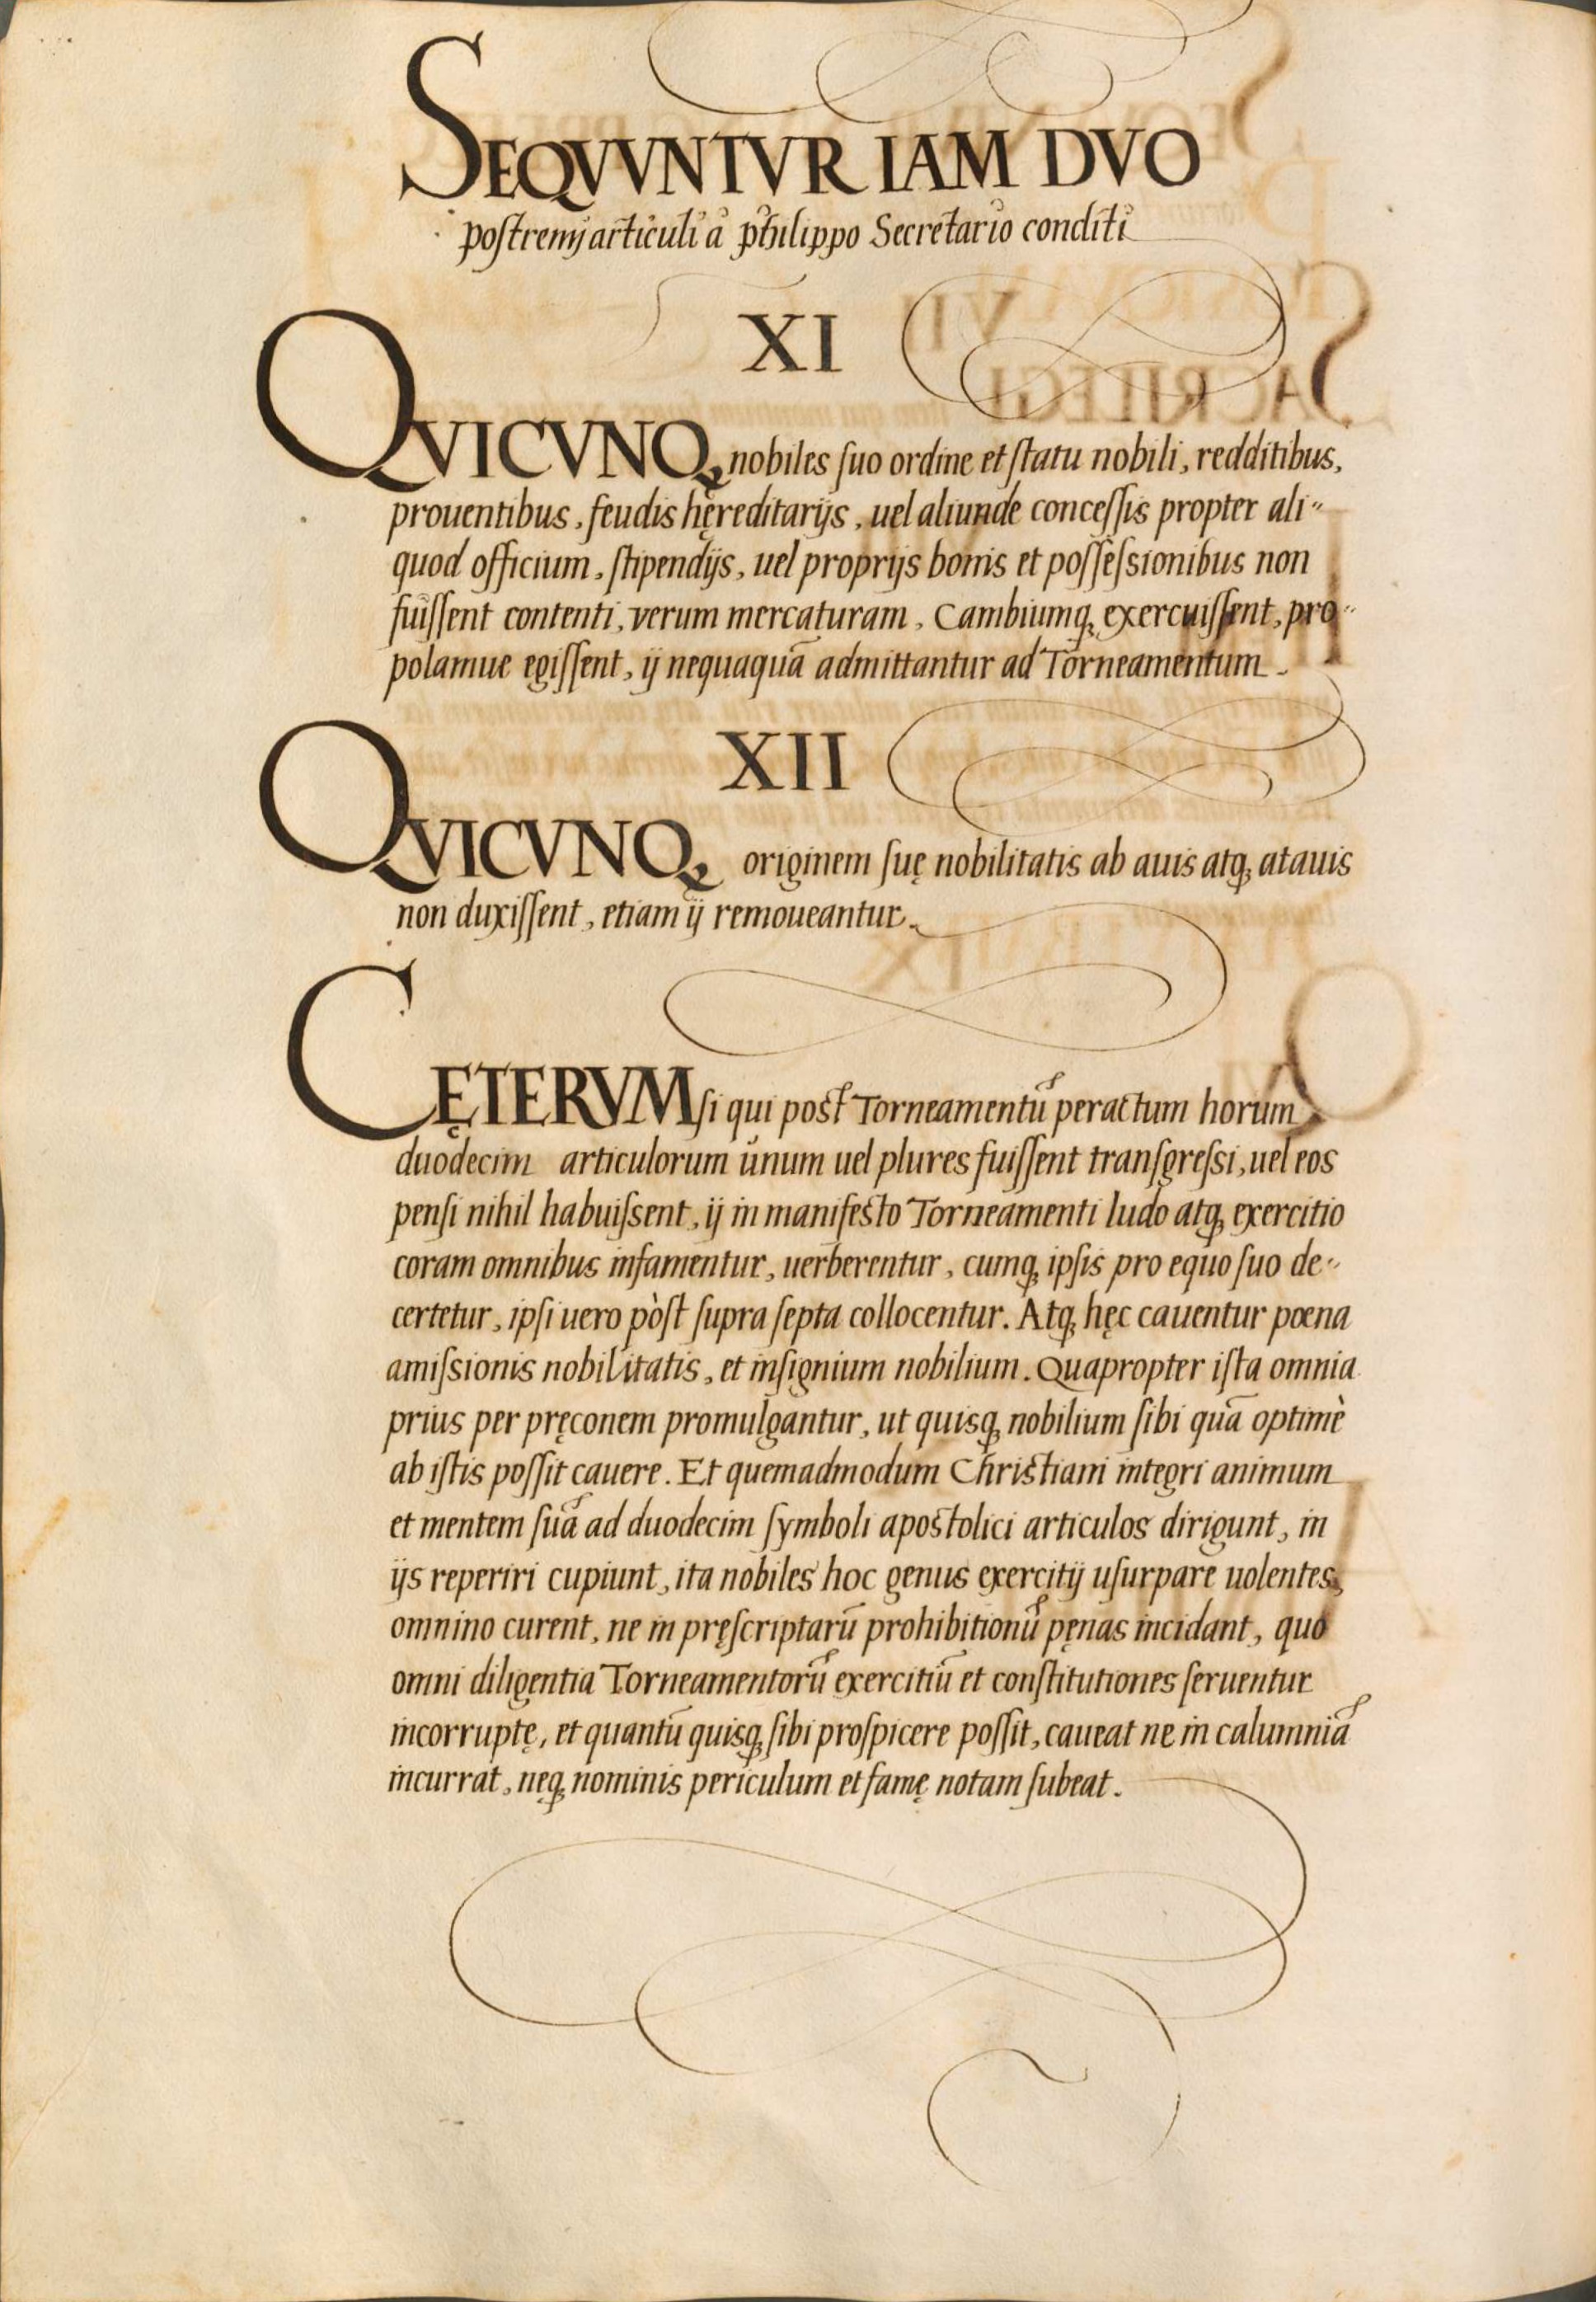 SEQVVNTVR IAM DVO
postremij articuli à philippo Secretario conditi
XI
QVICVNQ, nobiles suo ordine et statu nobili, redditibus,
prouentibus, feudis hęreditarijs, uel aliunde concessis propter ali-
quod officium, stipendijs, uel proprijs bonis et possessionibus non
fuissent contenti, verum mercaturam, Cambiumq, exercuissent, pro-
polamue egissent, ij nequaquã admittantur ad Torneamentum
XII
QVICVNQ, originem suę nobilitatis ab auis atq, atauis
non duxissent, etiam ij remoueantur.
CĘTERVM si qui post Torneamentũ peractum horum
duodecim articulorum unum uel plures fuissent transgressi, uel eos
pensi nihil habuissent, ij in manifesto Torneamenti ludo atq, exercitio
coram omnibus infamentur, uerberentur, cumq, ipsis pro equo suo de-
certetur, ipsi uero pòst supra septa collocentur. Atq, hęc cauentur pœna
amissionis nobilitatis, et insignium nobilium. Quapropter ista omnia
prius per pręconem promulgantur, ut quisq, nobilium sibi quã optimè
ab istis possit cauere. Et quemadmodum Christiani integri animum
et mentem suã ad duodecim symboli apostolici articulos dirigunt, in
ijs reperiri cupiunt, ita nobiles hoc genus exercitij usurpare uolentes,
omnino curent, ne in pręscriptarũ prohibitionũ pęnas incidant, quo
omni diligentia Torneamentorũ exercitiũ et constitutiones seruentur
incorruptę, et quantũ quisq, sibi prospicere possit, caueat ne in calumniã
incurrat, neq, nominis periculum et famę notam subeat.